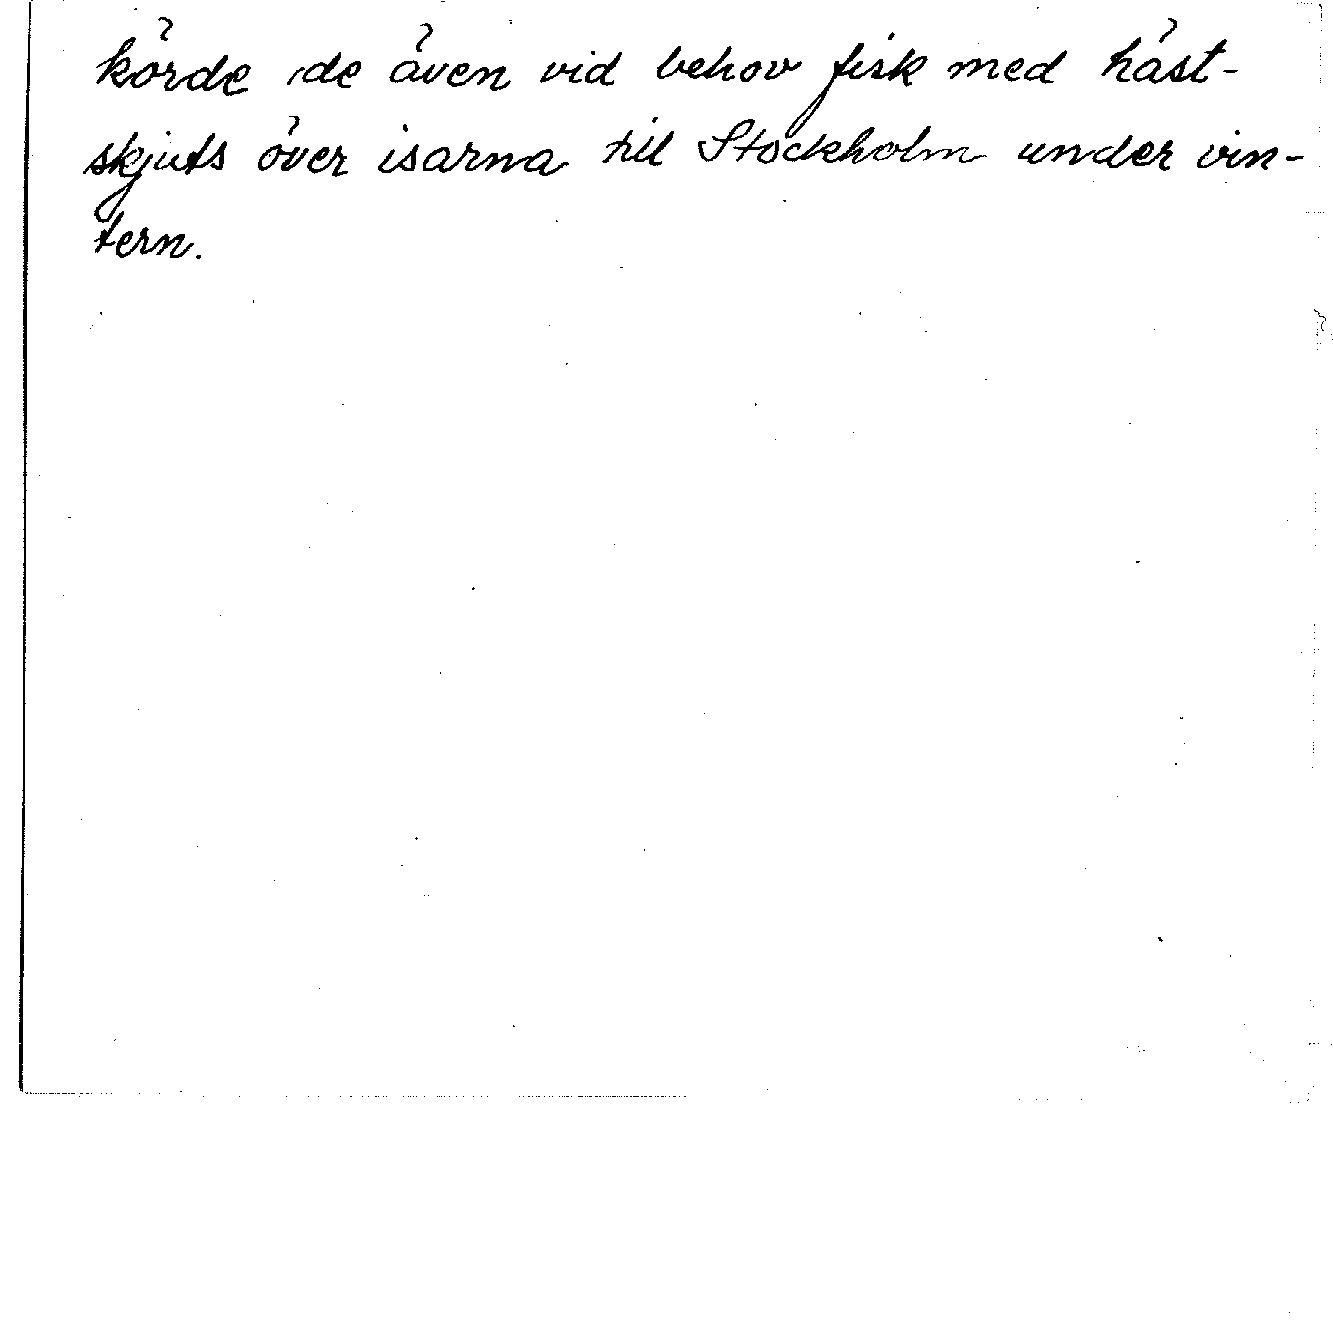 körde de även vid behov fisk med häst-
skjuts över isarna till Stockholm under vin-
tern.